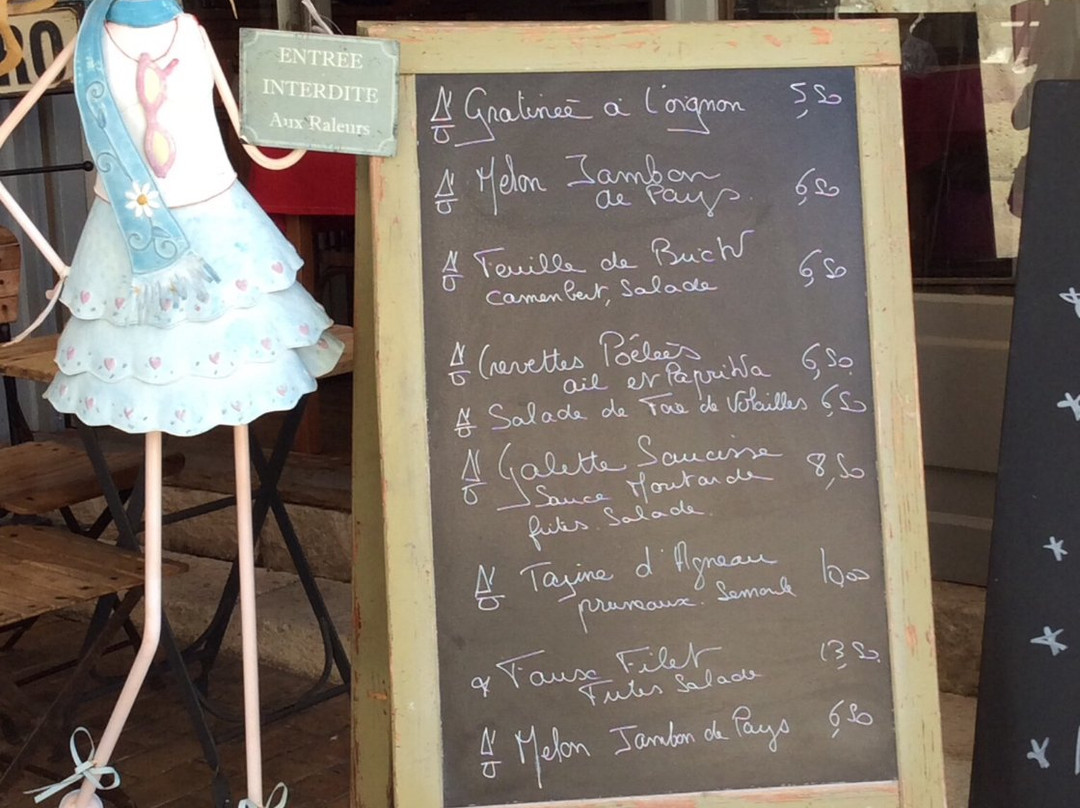 RO
ENTREE
INTERDITE
Aux Raleurs
Gratineé à l'oignon 5,50
Melon Jambon 6,50
de Pays.
Feuille de Brick 6,50
camenbert, Salade
Crevettes Poêlées 6,50
ail et Paprika
Salade de Foie de Volailles 6,50
Galette Saucisse 8,50
Sauce Moutarde
frites. Salade.
Tajine d'Agneau 10,00
pruneaux. Semoule
Faux Filet 13,50
Frites Salade
Melon Jambon de Pays 6,50